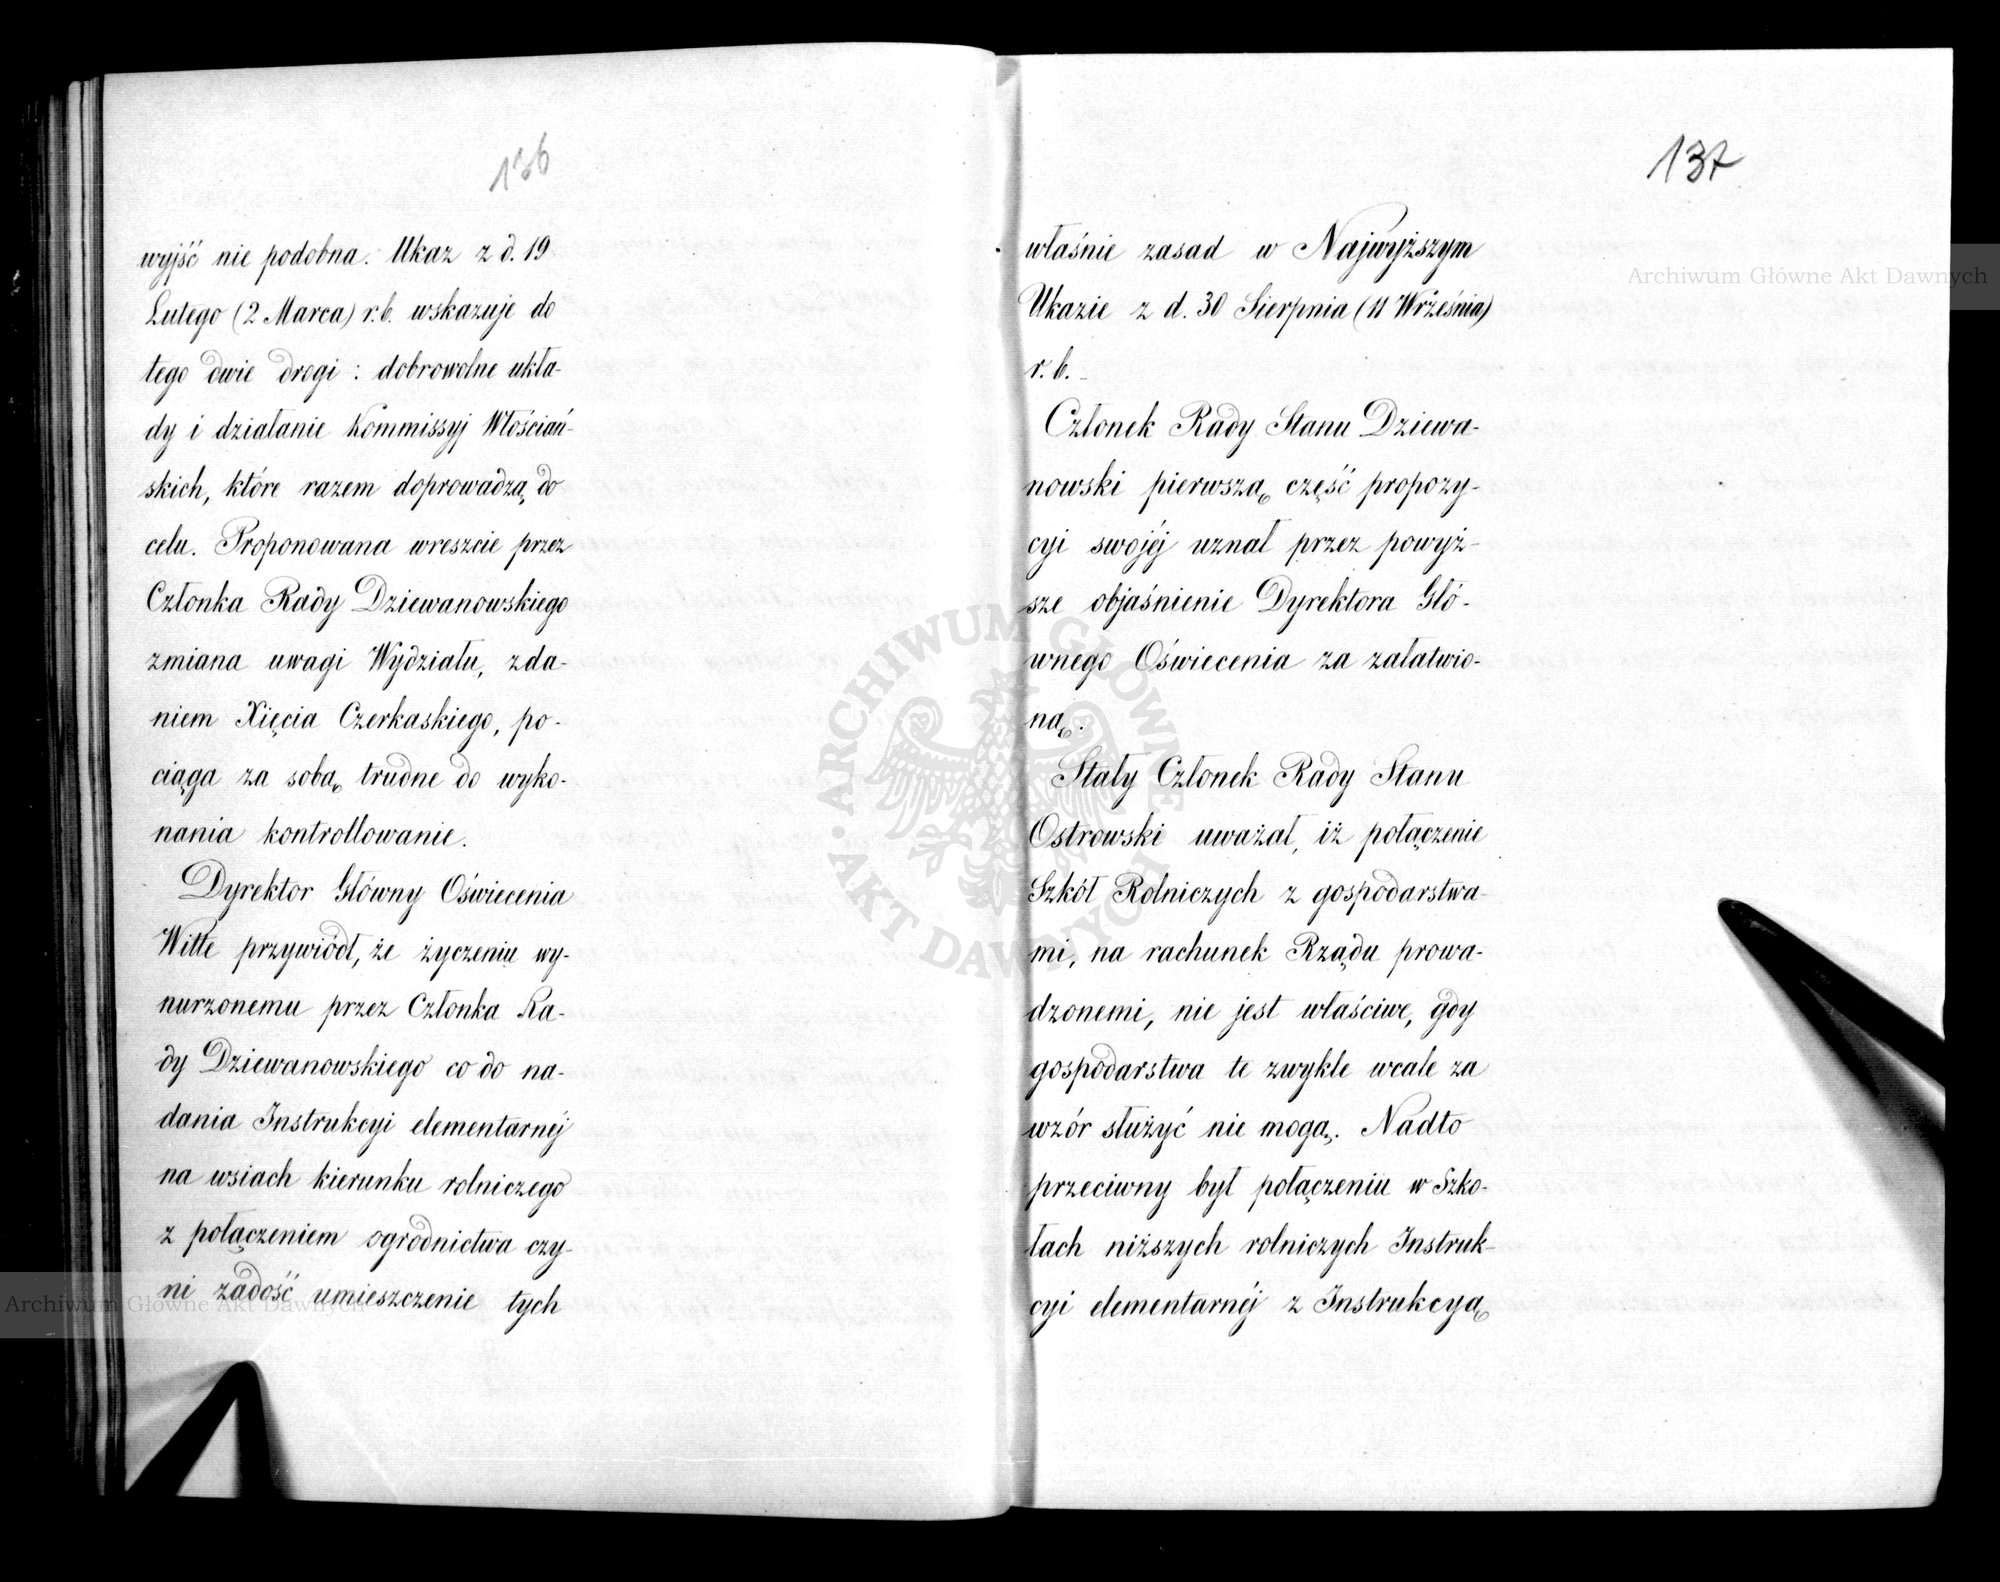 136
wyjść nie podobna. Ukaz z d. 19
Lutego (2 Marca) r.b. wskazuje do
tego dwie drogi : dobrowolne ukła-
dy i działanie Kommissyj Włościań-
skich, które razem doprowadzą do
celu. Proponowana wreszcie przez
Członka Rady Dziewanowskiego
zmiana uwagi Wydziału, zda-
niem Xięcia Czerkaskiego, po-
ciąga za sobą trudne do wyko-
nania kontrollowanie.
Dyrektor Główny Oświecenia
Witte przywiódł, że życzeniu wy-
nurzonemu przez Członka Ra-
dy Dziewanowskiego co do na-
dania Instrukcyi elementarnéj
na wsiach kierunku rolniczego
z połączeniem ogrodnictwa czy-
ni zadość umieszczenie tych
137
właśnie zasad w Najwyższym
Ukazie z d. 30 Sierpnia (11 Września)
r. b. -
Członek Rady Stanu Dziewa-
nowski pierwszą część propozy-
cyi swojéj uznał przez powyż-
sze objaśnienie Dyrektora Głó-
wnego Oświecenia za załatwio-
ną.
Stały Członek Rady Stanu
Ostrowski uważał, iż połączenie
Szkół Rolniczych z gospodarstwa-
mi, na rachunek Rządu prowa-
dzonemi, nie jest właściwe, gdy
gospodarstwa te zwykle wcale za
wzór służyć nie mogą. Nadto
przeciwny był połączeniu w Szko-
łach niższych rolniczych Instruk-
cyi elementarnéj z Instrukcyą
Archiwum Główne Akt Dawnych
Archiwum Główne Akt Dawnych
ARCHIWUM GŁÓWNE
AKT DAWNYCH